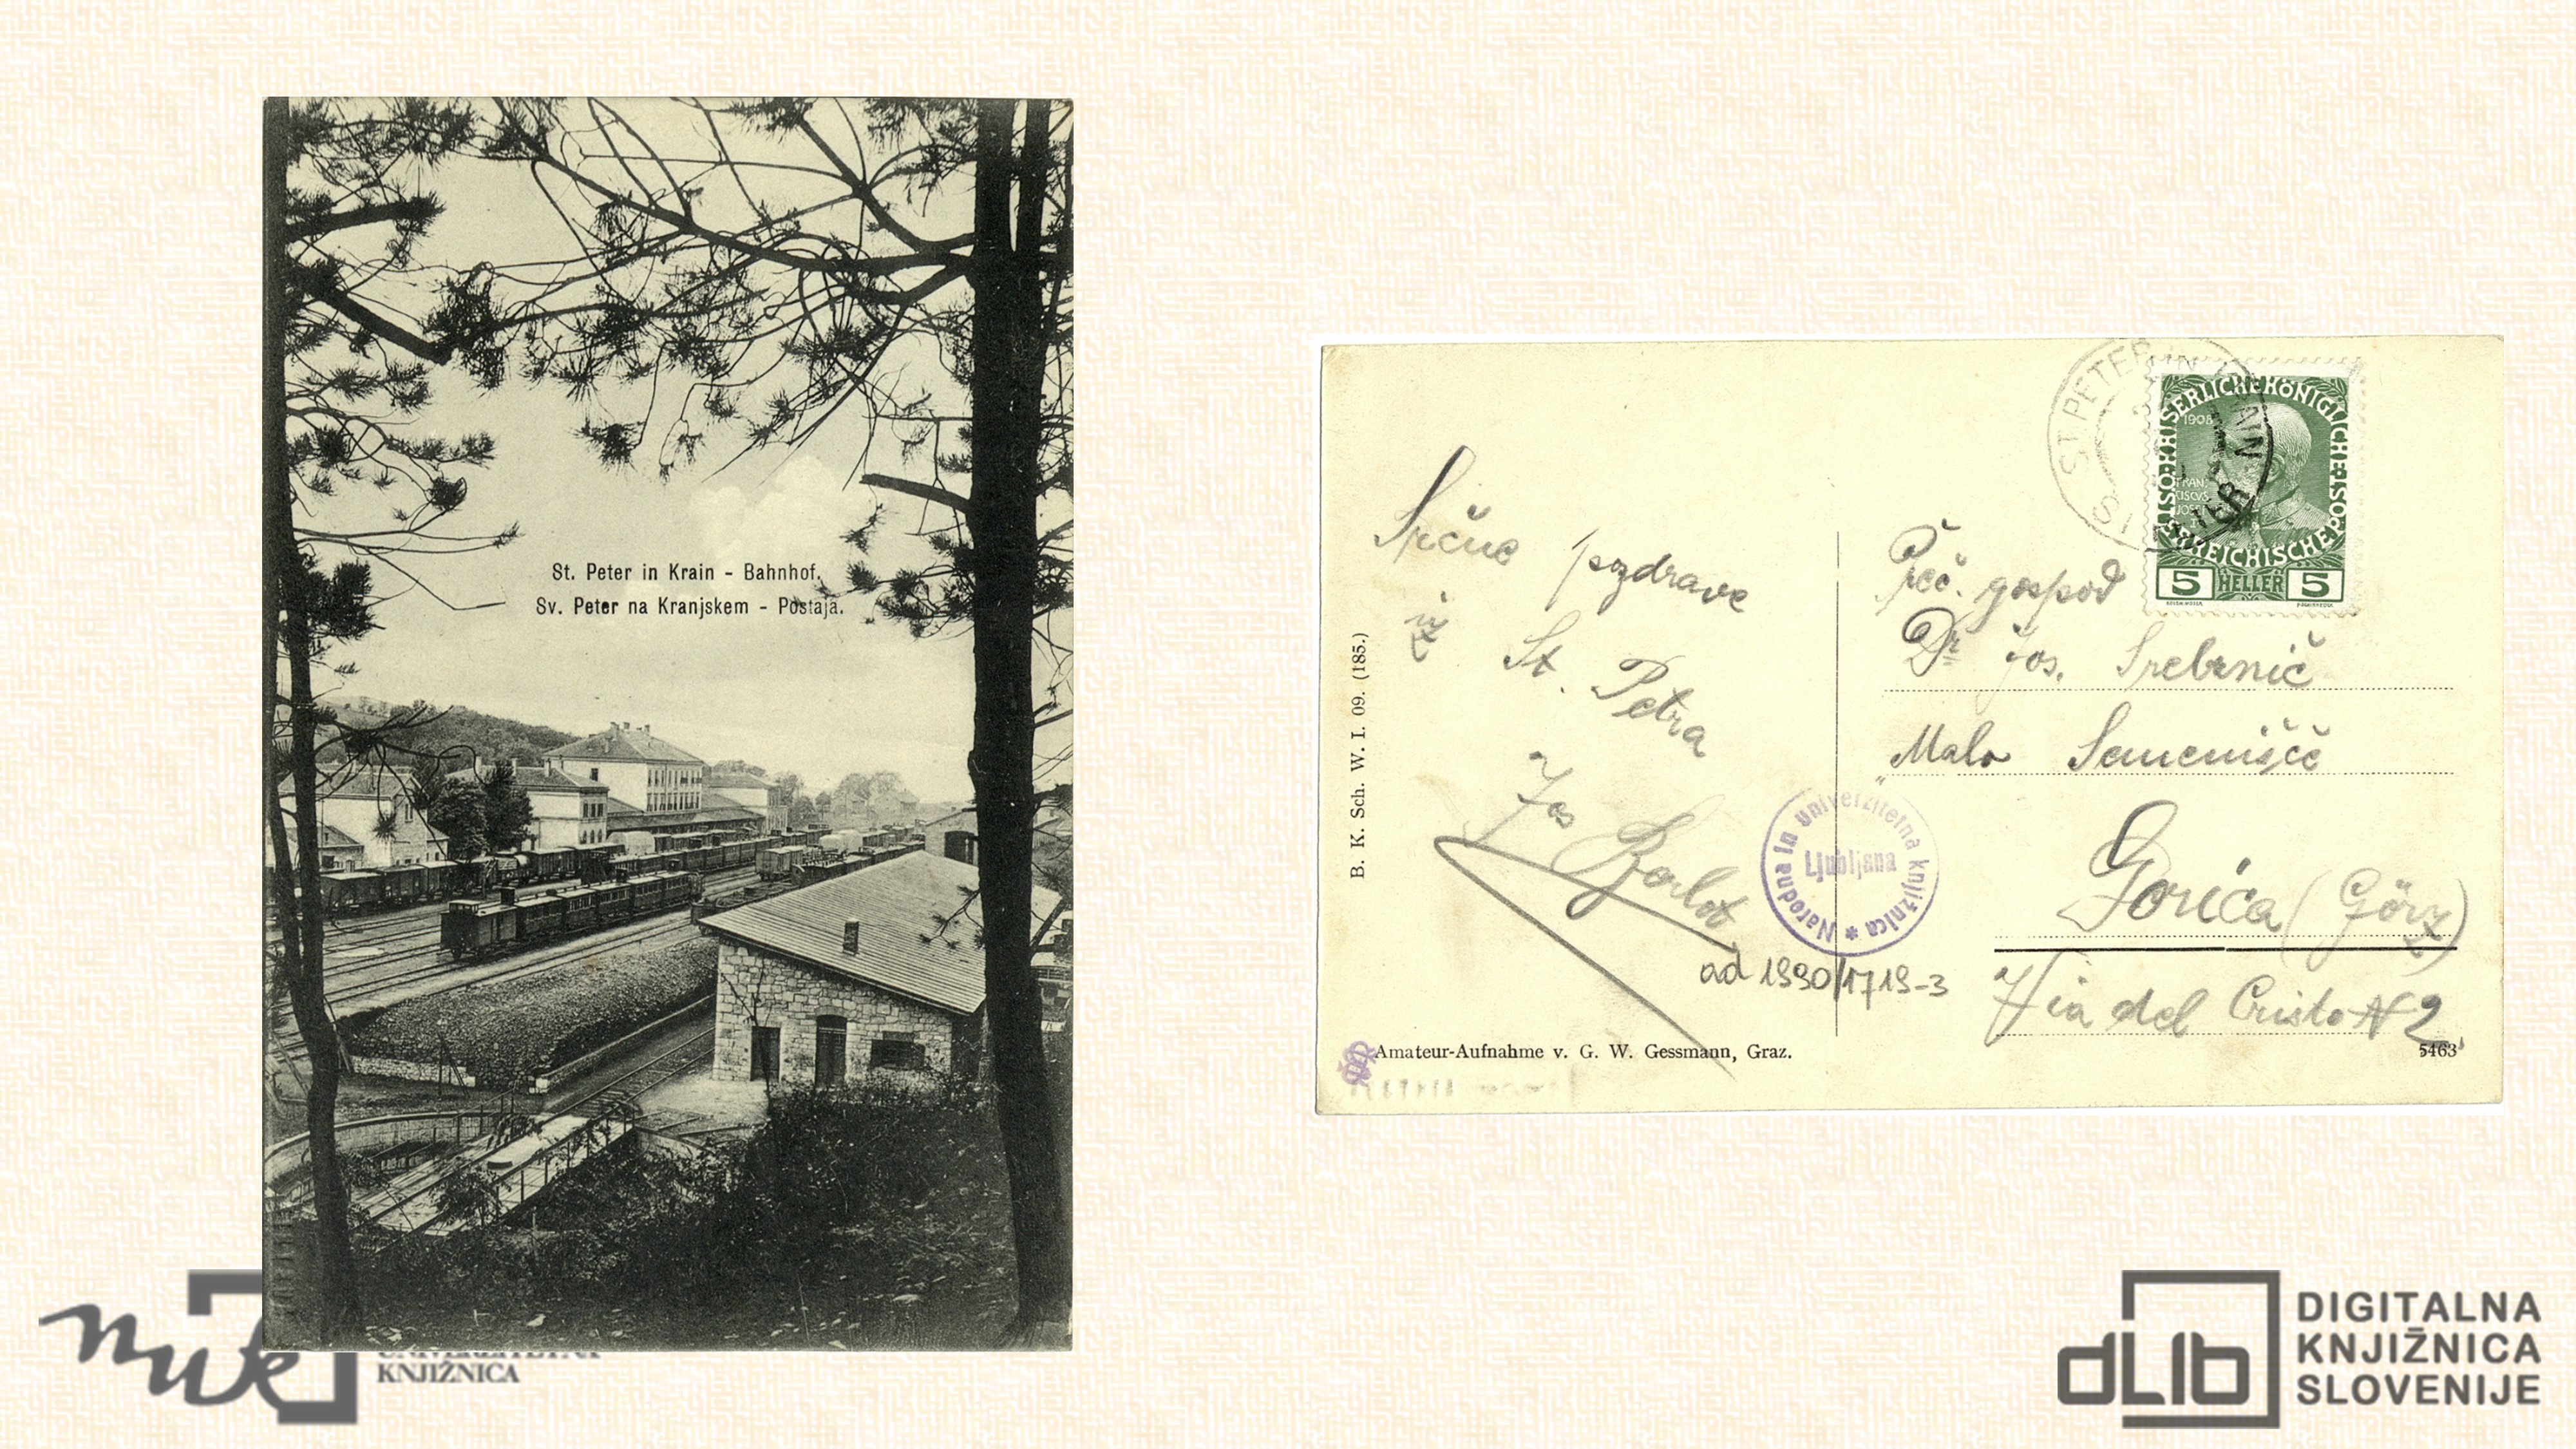 St. Peter in Krain - Bahnhof.
Sv. Peter na Kranjskem - Postaja.
Srčne pozdrave
iz St. Petra
Jos
B. K. Sch. W. I. 09. (185.)
Amateur-Aufnahme v. G. W. Gessmann, Graz.
ad 1990/1719-3
Narodna in univerzitetna knjižnica *
Ljubljana
ST. PETER IN KRAIN
KAISERLICHE KÖNIGLICHE ÖSTERREICHISCHE POST
1908
FRAN
CISCVS
JOS
5 HELLER 5
Preč. gospod
Dr Jos. Srebrnič
Malo Semenišče
Gorica (Görz)
Via del Cristo N 2
5463
nuk
KNJIŽNICA
dLib
DIGITALNA
KNJIŽNICA
SLOVENIJE